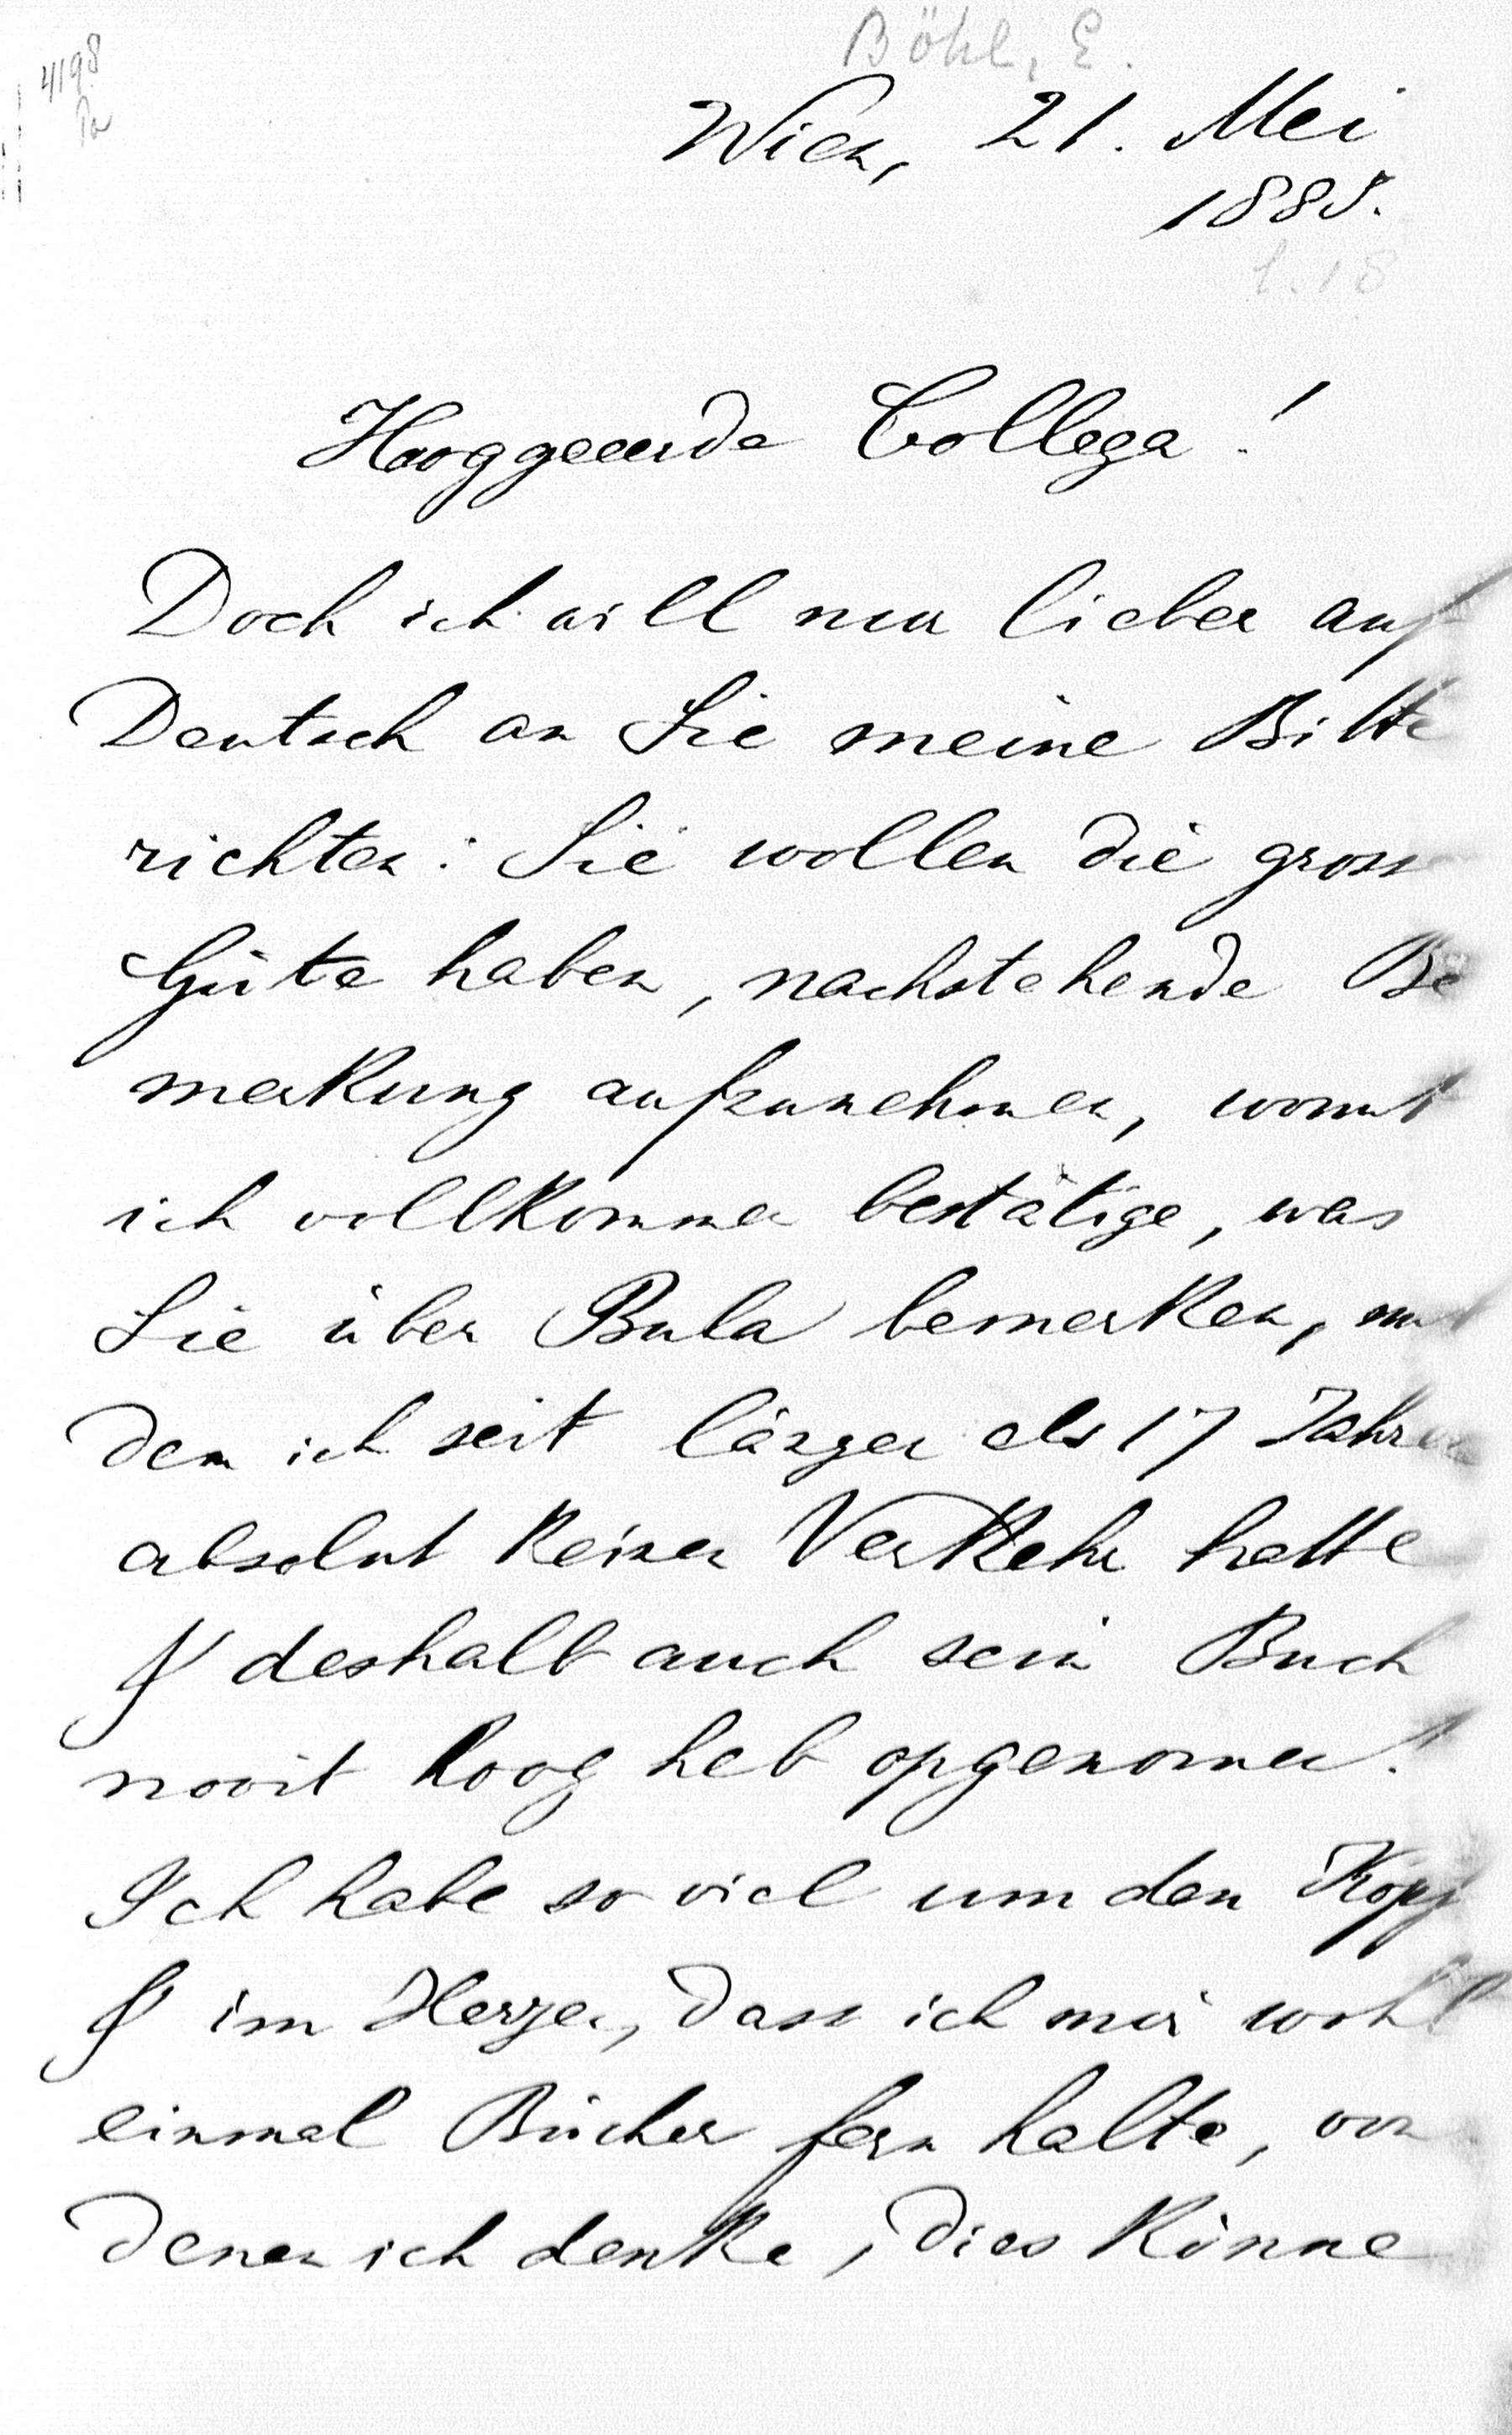 Böhl, E.
4198
Wien, 21. Mei
1885.
Hooggeeerde Collega!
Doch ich will nun lieber auf
Deutsch an Sie meine Bitte
richten: Sie wollen die gross
Güte haben, nachstehende Be
merkung aufzunehmen, womit
ich vollkommen bestätige, was
Sie über Bula bemerken, mit
dem ich seit länger als 17 Jahren
absolut keinen Verkehr hatte
& deshalb auch sein Buch
nooit hoog heb opgenomen.
Ich habe so viel um den Kopf
& im Herzen, dass ich mir wohl
einmal Bücher fern halte, von
denen ich denke, dies Könne